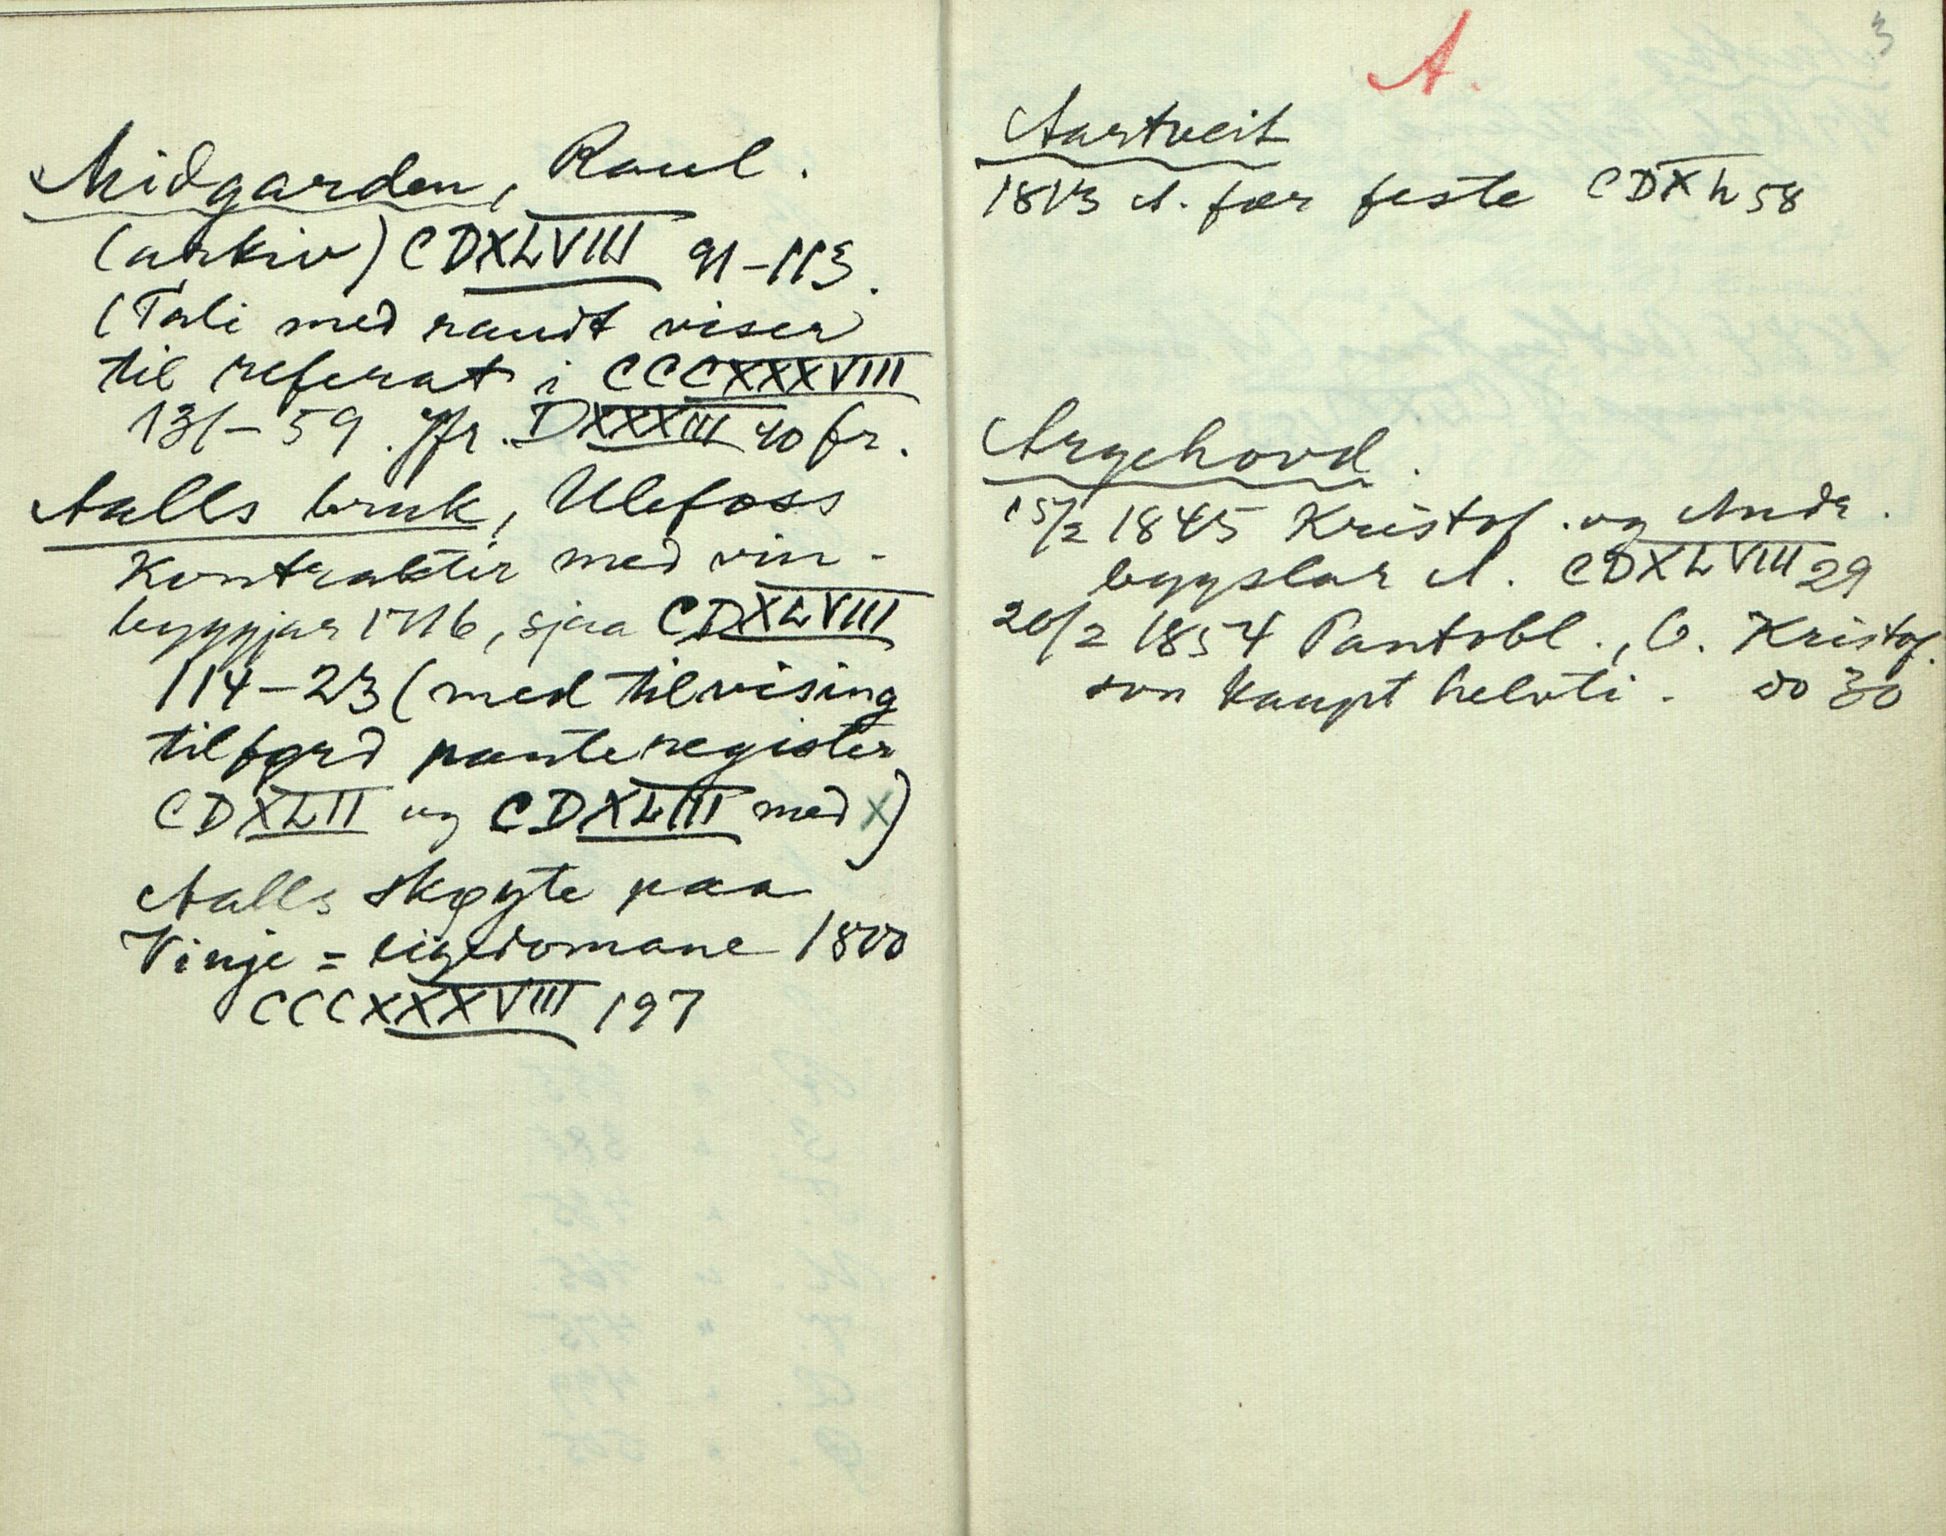 Midgarden, Raul.
(arkiv) CDXLVIII 91-113.
(Tali med raudt viser
til referat i CCCXXXVIII
131-59. Jfr. DXXXIII 40 fr.
Aalls bruk, Ulefoss
Kontraktir med vin-
byggjar 1716, sjaa CDXLVIII
114-23 (med tilvising
tilførd panteregister
CDXLII og CDXLIII med X)
Aalls skøyte paa
Vinje = eigedomane 1800
CCCXXXVIII 197
3
A.
Aartveit
1813 A. fær feste CDXL 58
Argehovd.
15/2 1845 Kristof. og Andr.
bygslar A. CDXLVIII 29
20/2 1854 Pantobl., O. Kristof.
son kaupt helvti. do 30